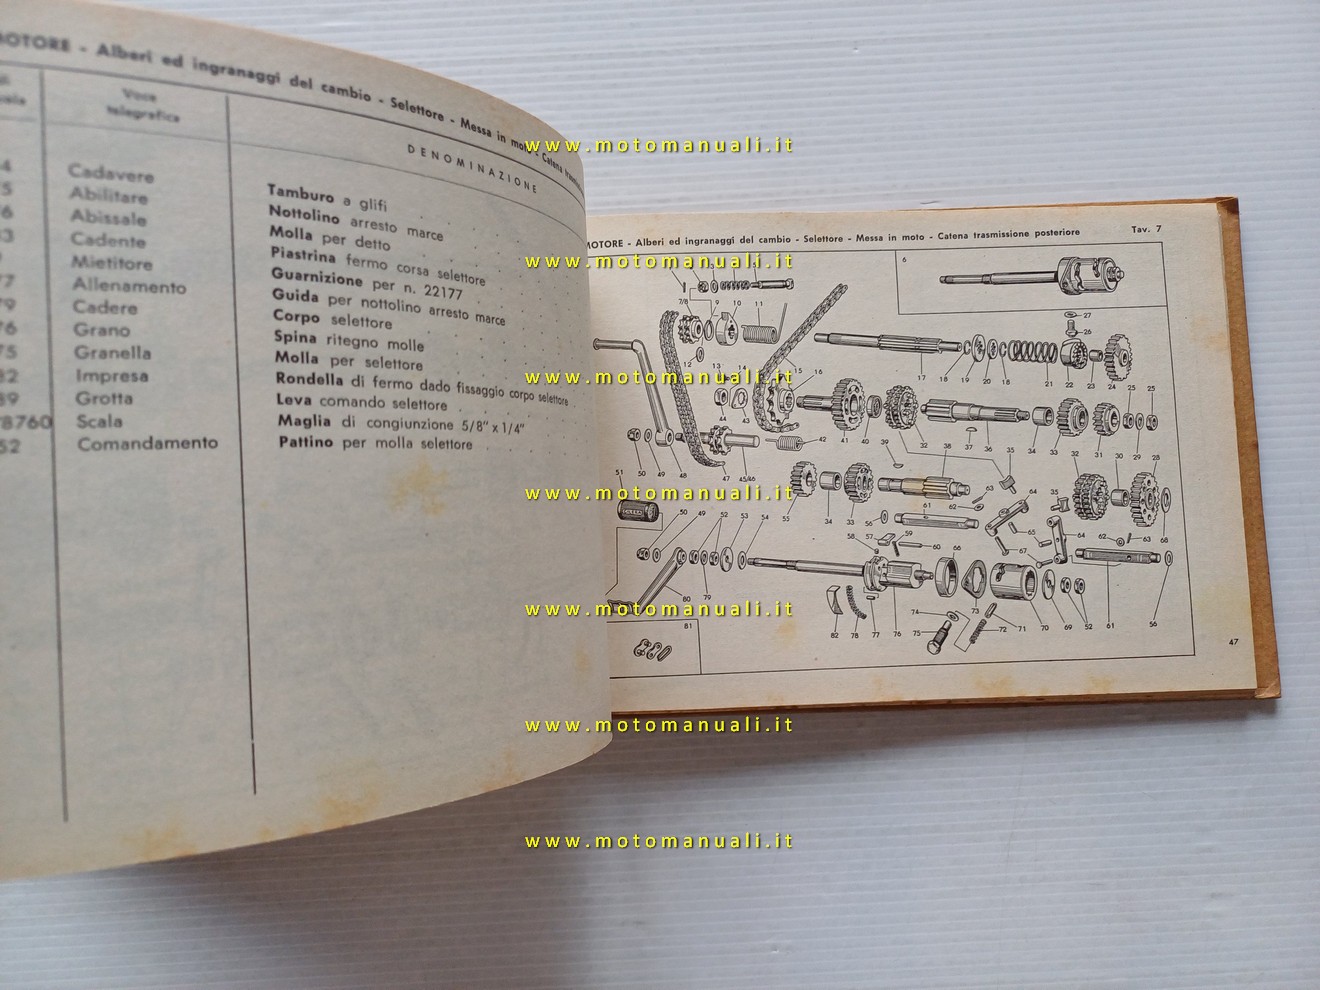 MOTORE - Alberi ed ingranaggi del cambio - Selettore - Messa in moto - Catena
Voce
telegrafica
DENOMINAZIONE
Cadavere
Tamburo a glifi
Abilitare
Nottolino arresto marce
Abissale
Molla per detto
Cadente
Piastrina fermo corsa selettore
Mietitore
Guarnizione per n. 22177
Allenamento
Guida per nottolino arresto marce
Cadere
Corpo selettore
Grano
Spina ritegno molle
Granella
Molla per selettore
Impresa
Rondella di fermo dado fissaggio corpo selettore
Grotta
Leva comando selettore
Scala
Maglia di congiunzione 5/8" x 1/4"
Comandamento
Pattino per molla selettore
MOTORE - Alberi ed ingranaggi del cambio - Selettore - Messa in moto - Catena trasmissione posteriore
Tav. 7
6
7/8 9 10 11
27
26
12
13 14 15 16
17 18 19 20 18 21 22 23 24 25 25
44 43 42 41 40 32 37 36 34 33 31 29
39 38 35 32 30 28
50 49 48 47 45/46
51
55 34 33 56 61 62 63 64 35
50 49 52 53 54
57 59 58 60 66 65 67 64 62 63 68
79 80
82 78 77 76 75 74 73 72 71 70 69 52 61 56
81
47
www.motomanuali.it
www.motomanuali.it
www.motomanuali.it
www.motomanuali.it
www.motomanuali.it
www.motomanuali.it
www.motomanuali.it